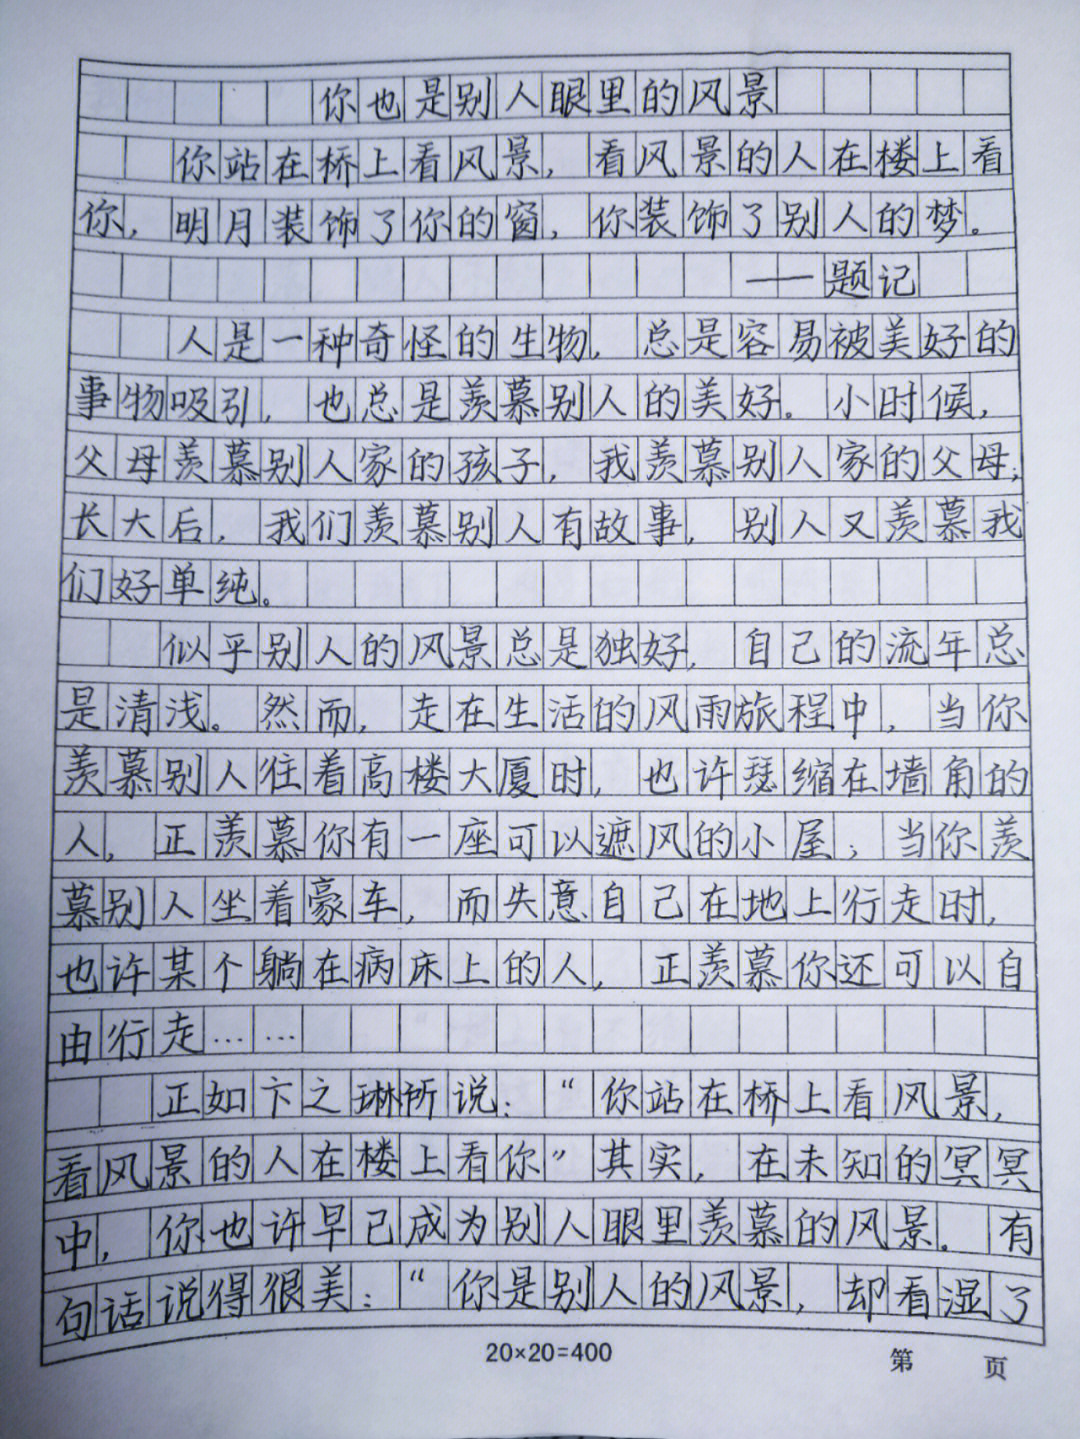 你也是别人眼里的风景
你站在桥上看风景，看风景的人在楼上看
你，明月装饰了你的窗，你装饰了别人的梦。
——题记
人是一种奇怪的生物，总是容易被美好的
事物吸引，也总是羡慕别人的美好。小时候，
父母羡慕别人家的孩子，我羡慕别人家的父母；
长大后，我们羡慕别人有故事，别人又羡慕我
们好单纯。
似乎别人的风景总是独好，自己的流年总
是清浅。然而，走在生活的风雨旅程中，当你
羡慕别人住着高楼大厦时，也许瑟缩在墙角的
人，正羡慕你有一座可以遮风的小屋；当你羡
慕别人坐着豪车，而失意自己在地上行走时，
也许某个躺在病床上的人，正羡慕你还可以自
由行走……
正如卞之琳所说：“你站在桥上看风景，
看风景的人在楼上看你”其实，在未知的冥冥
中，你也许早已成为别人眼里羡慕的风景。有
句话说得很美：“你是别人的风景，却看湿了
20×20=400
第 页